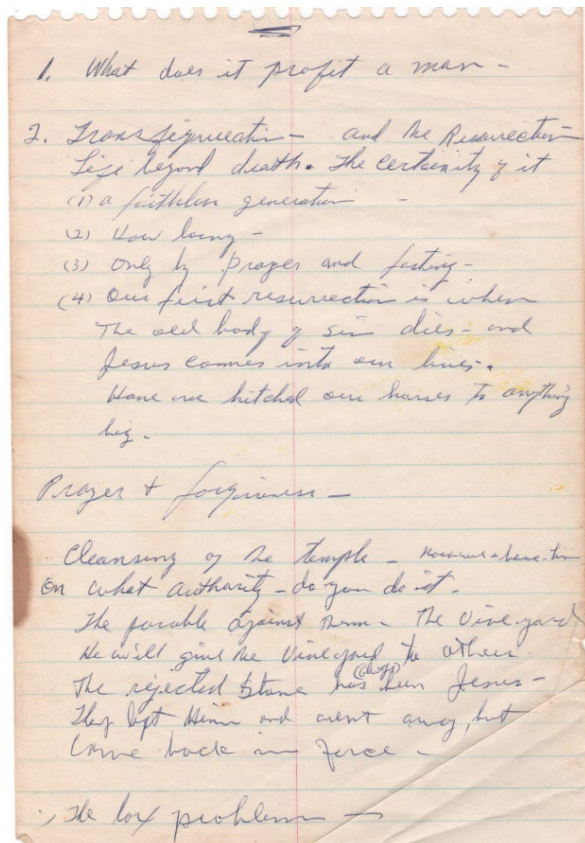 1. What does it profit a man -
2. Transfiguration - and the Resurrection
Life beyond death. The certainty of it
(1) a faithless generation -
(2) How long -
(3) Only by prayer and fasting -
(4) Our first resurrection is when
The old body of sin dies - and
Jesus comes into our lives.
Have we hitched our to anything
big.
Prayer + forgiveness -
Cleansing of the temple -
On what authority - do you do it.
The parable against them - The Vineyard
He will give the Vineyard to others.
The rejected Stone has been Jesus -
They left Him and went away, but
Come back in force -
The tax problem -